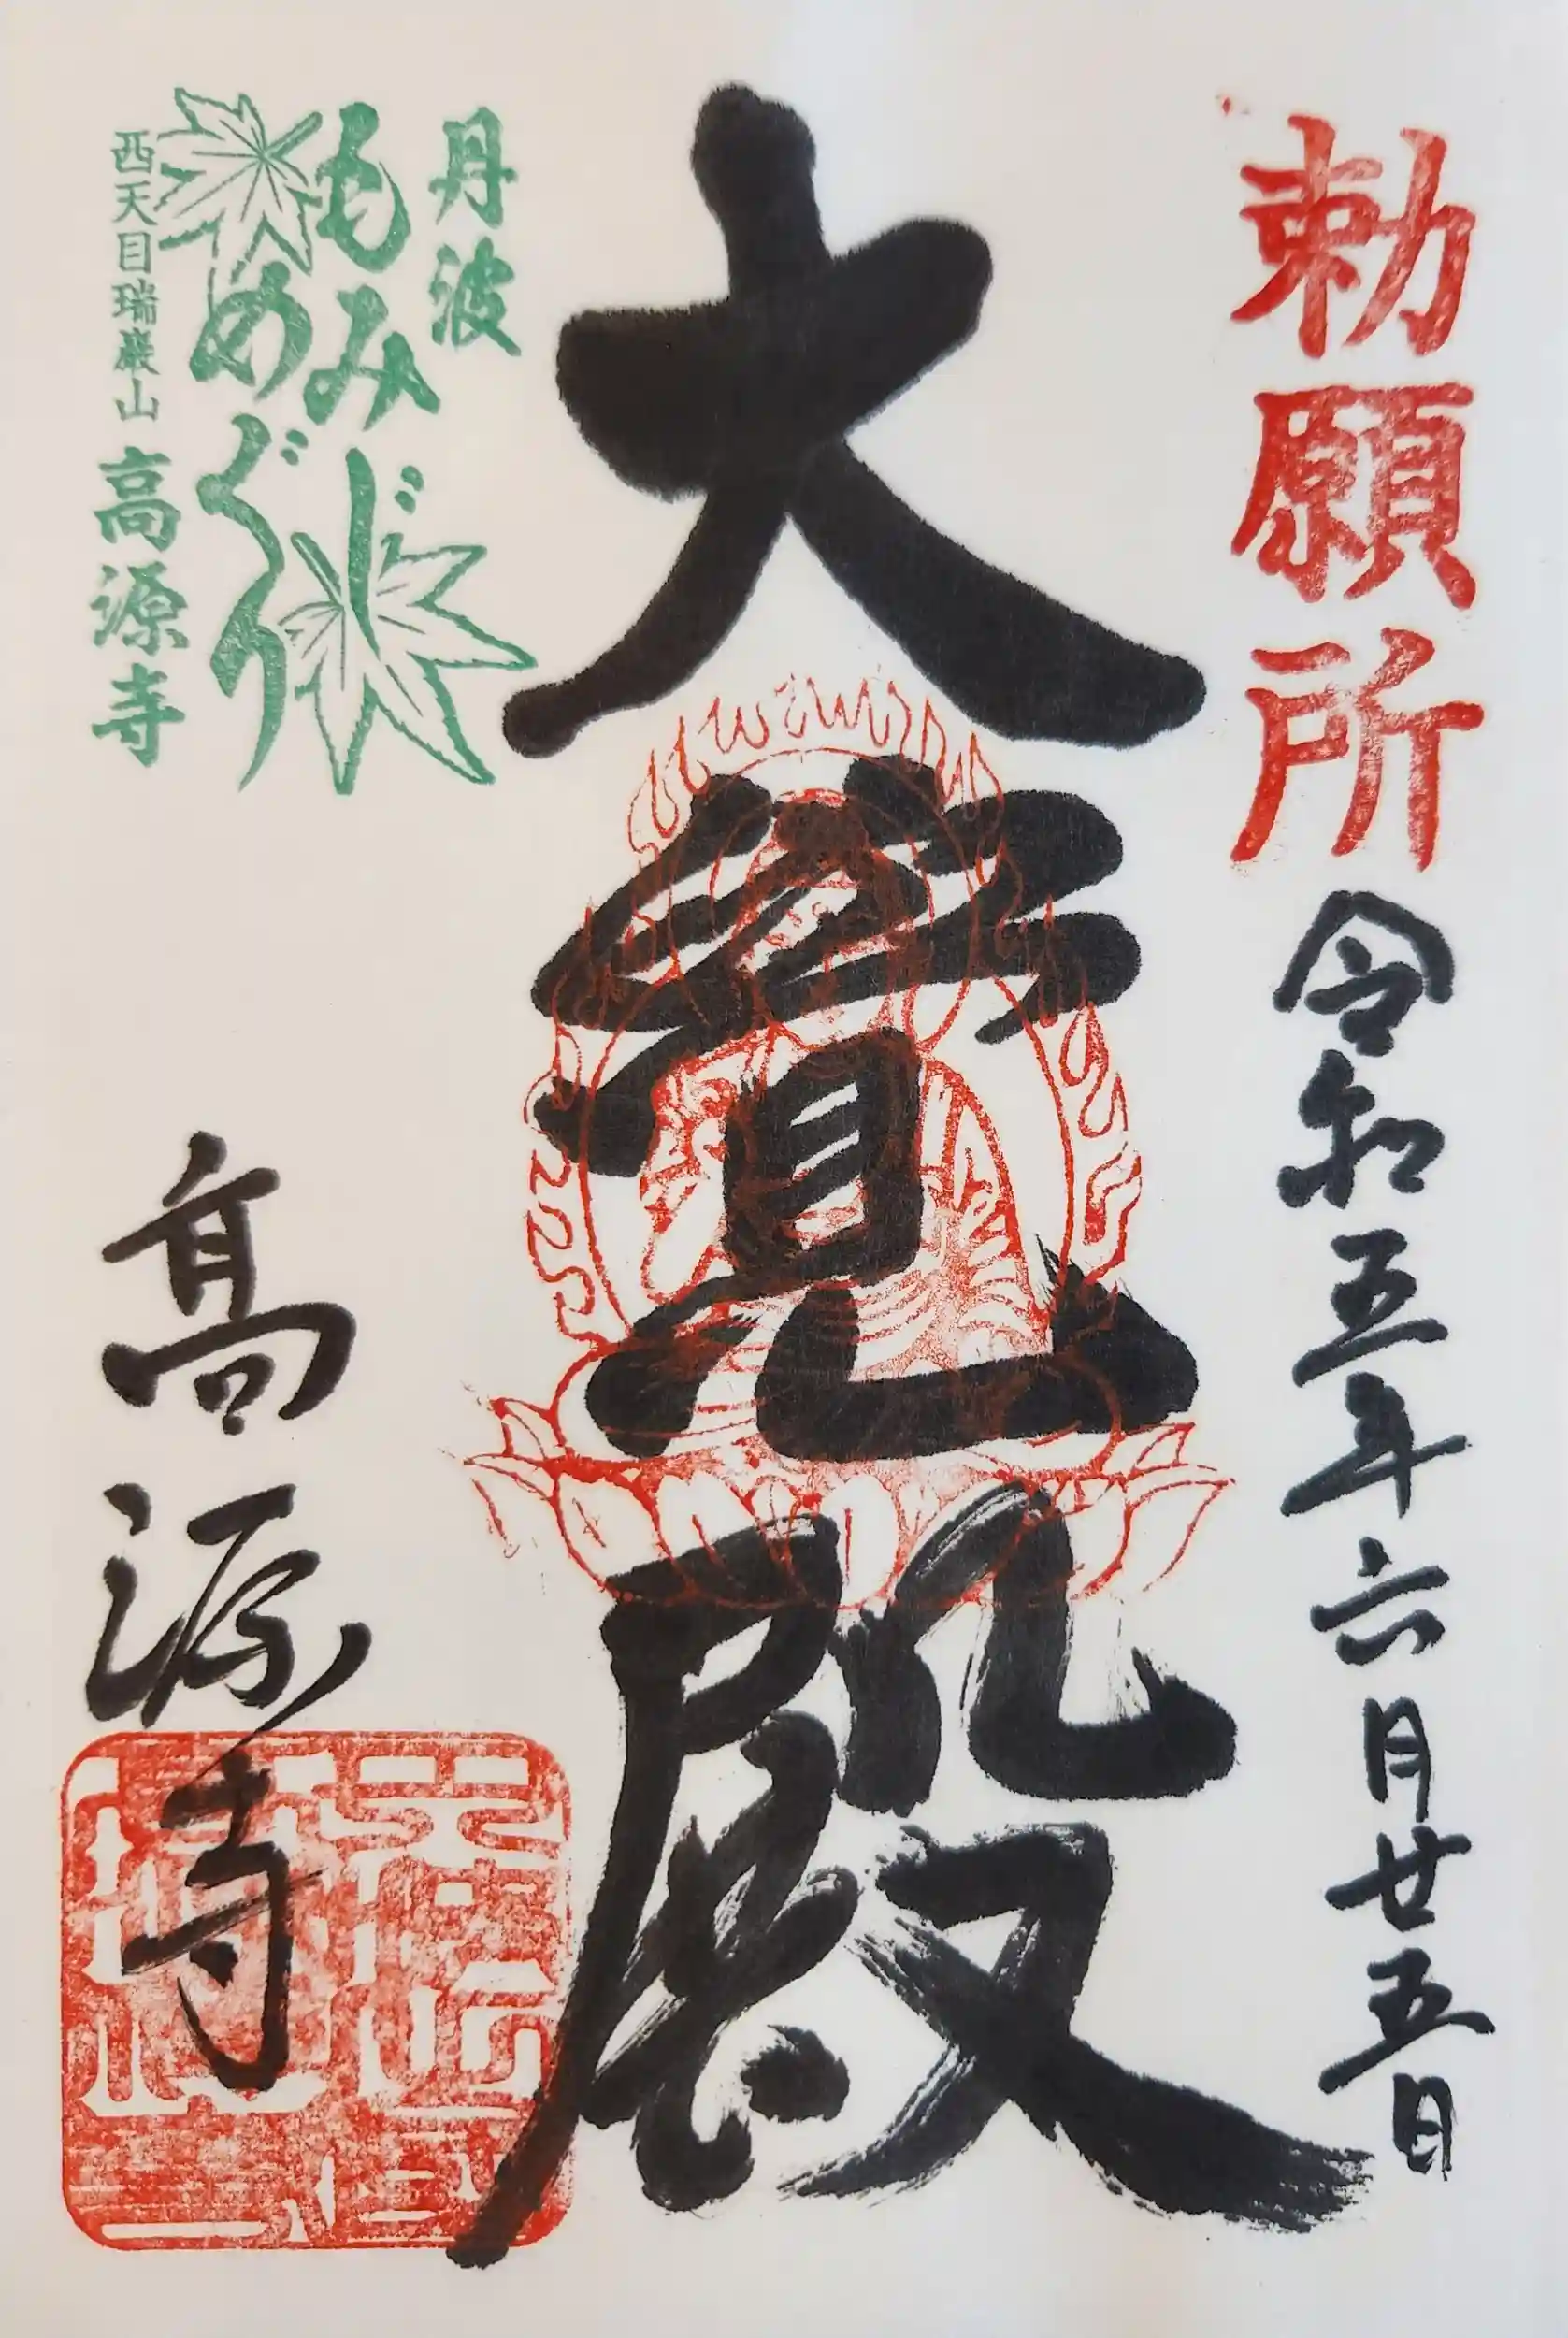 勅願所
令和五年六月廿五日
大覚殿
丹波
もみじ
めぐり
西天目瑞巌山 高源寺
高源寺